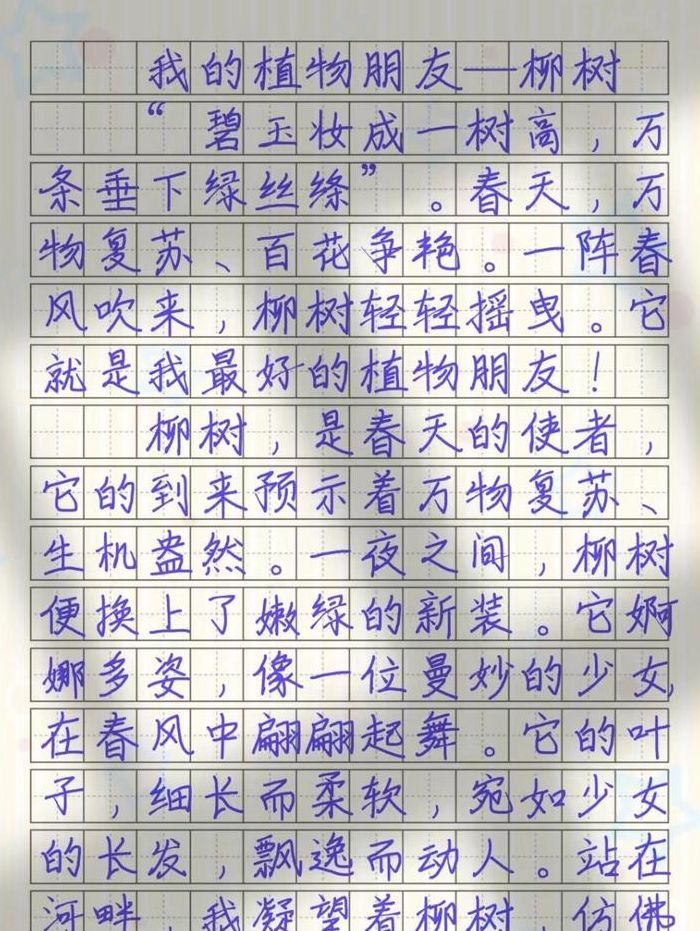 我的植物朋友—柳树
“碧玉妆成一树高，万
条垂下绿丝绦”。春天，万
物复苏、百花争艳。一阵春
风吹来，柳树轻轻摇曳。它
就是我最好的植物朋友！
柳树，是春天的使者，
它的到来预示着万物复苏、
生机盎然。一夜之间，柳树
便换上了嫩绿的新装。它婀
娜多姿，像一位曼妙的少女，
在春风中翩翩起舞。它的叶
子，细长而柔软，宛如少女
的长发，飘逸而动人。站在
河畔，我凝望着柳树，仿佛